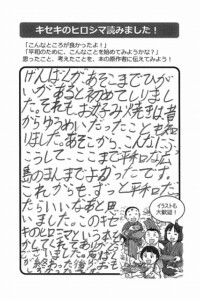 キセキのヒロシマ読みました!
「こんなところが良かったよ!」
「平和のためにこんなことを始めてみようかな?」
思ったこと、考えたことを、本の原作者に伝えてみよう!
げんばくがあそこまでひが
いがあると初めてしりまし
た。それもお好み焼きは昔
からゆうめいだったことも知
りました。あそこから、こんなにふ
っこうしてここまで平和な広
島のままでよかったです。
これからもずっと平和だっ
たらいいなあと思
いました。このキセ
キのヒロシマという本を
イラストも
大歓迎!